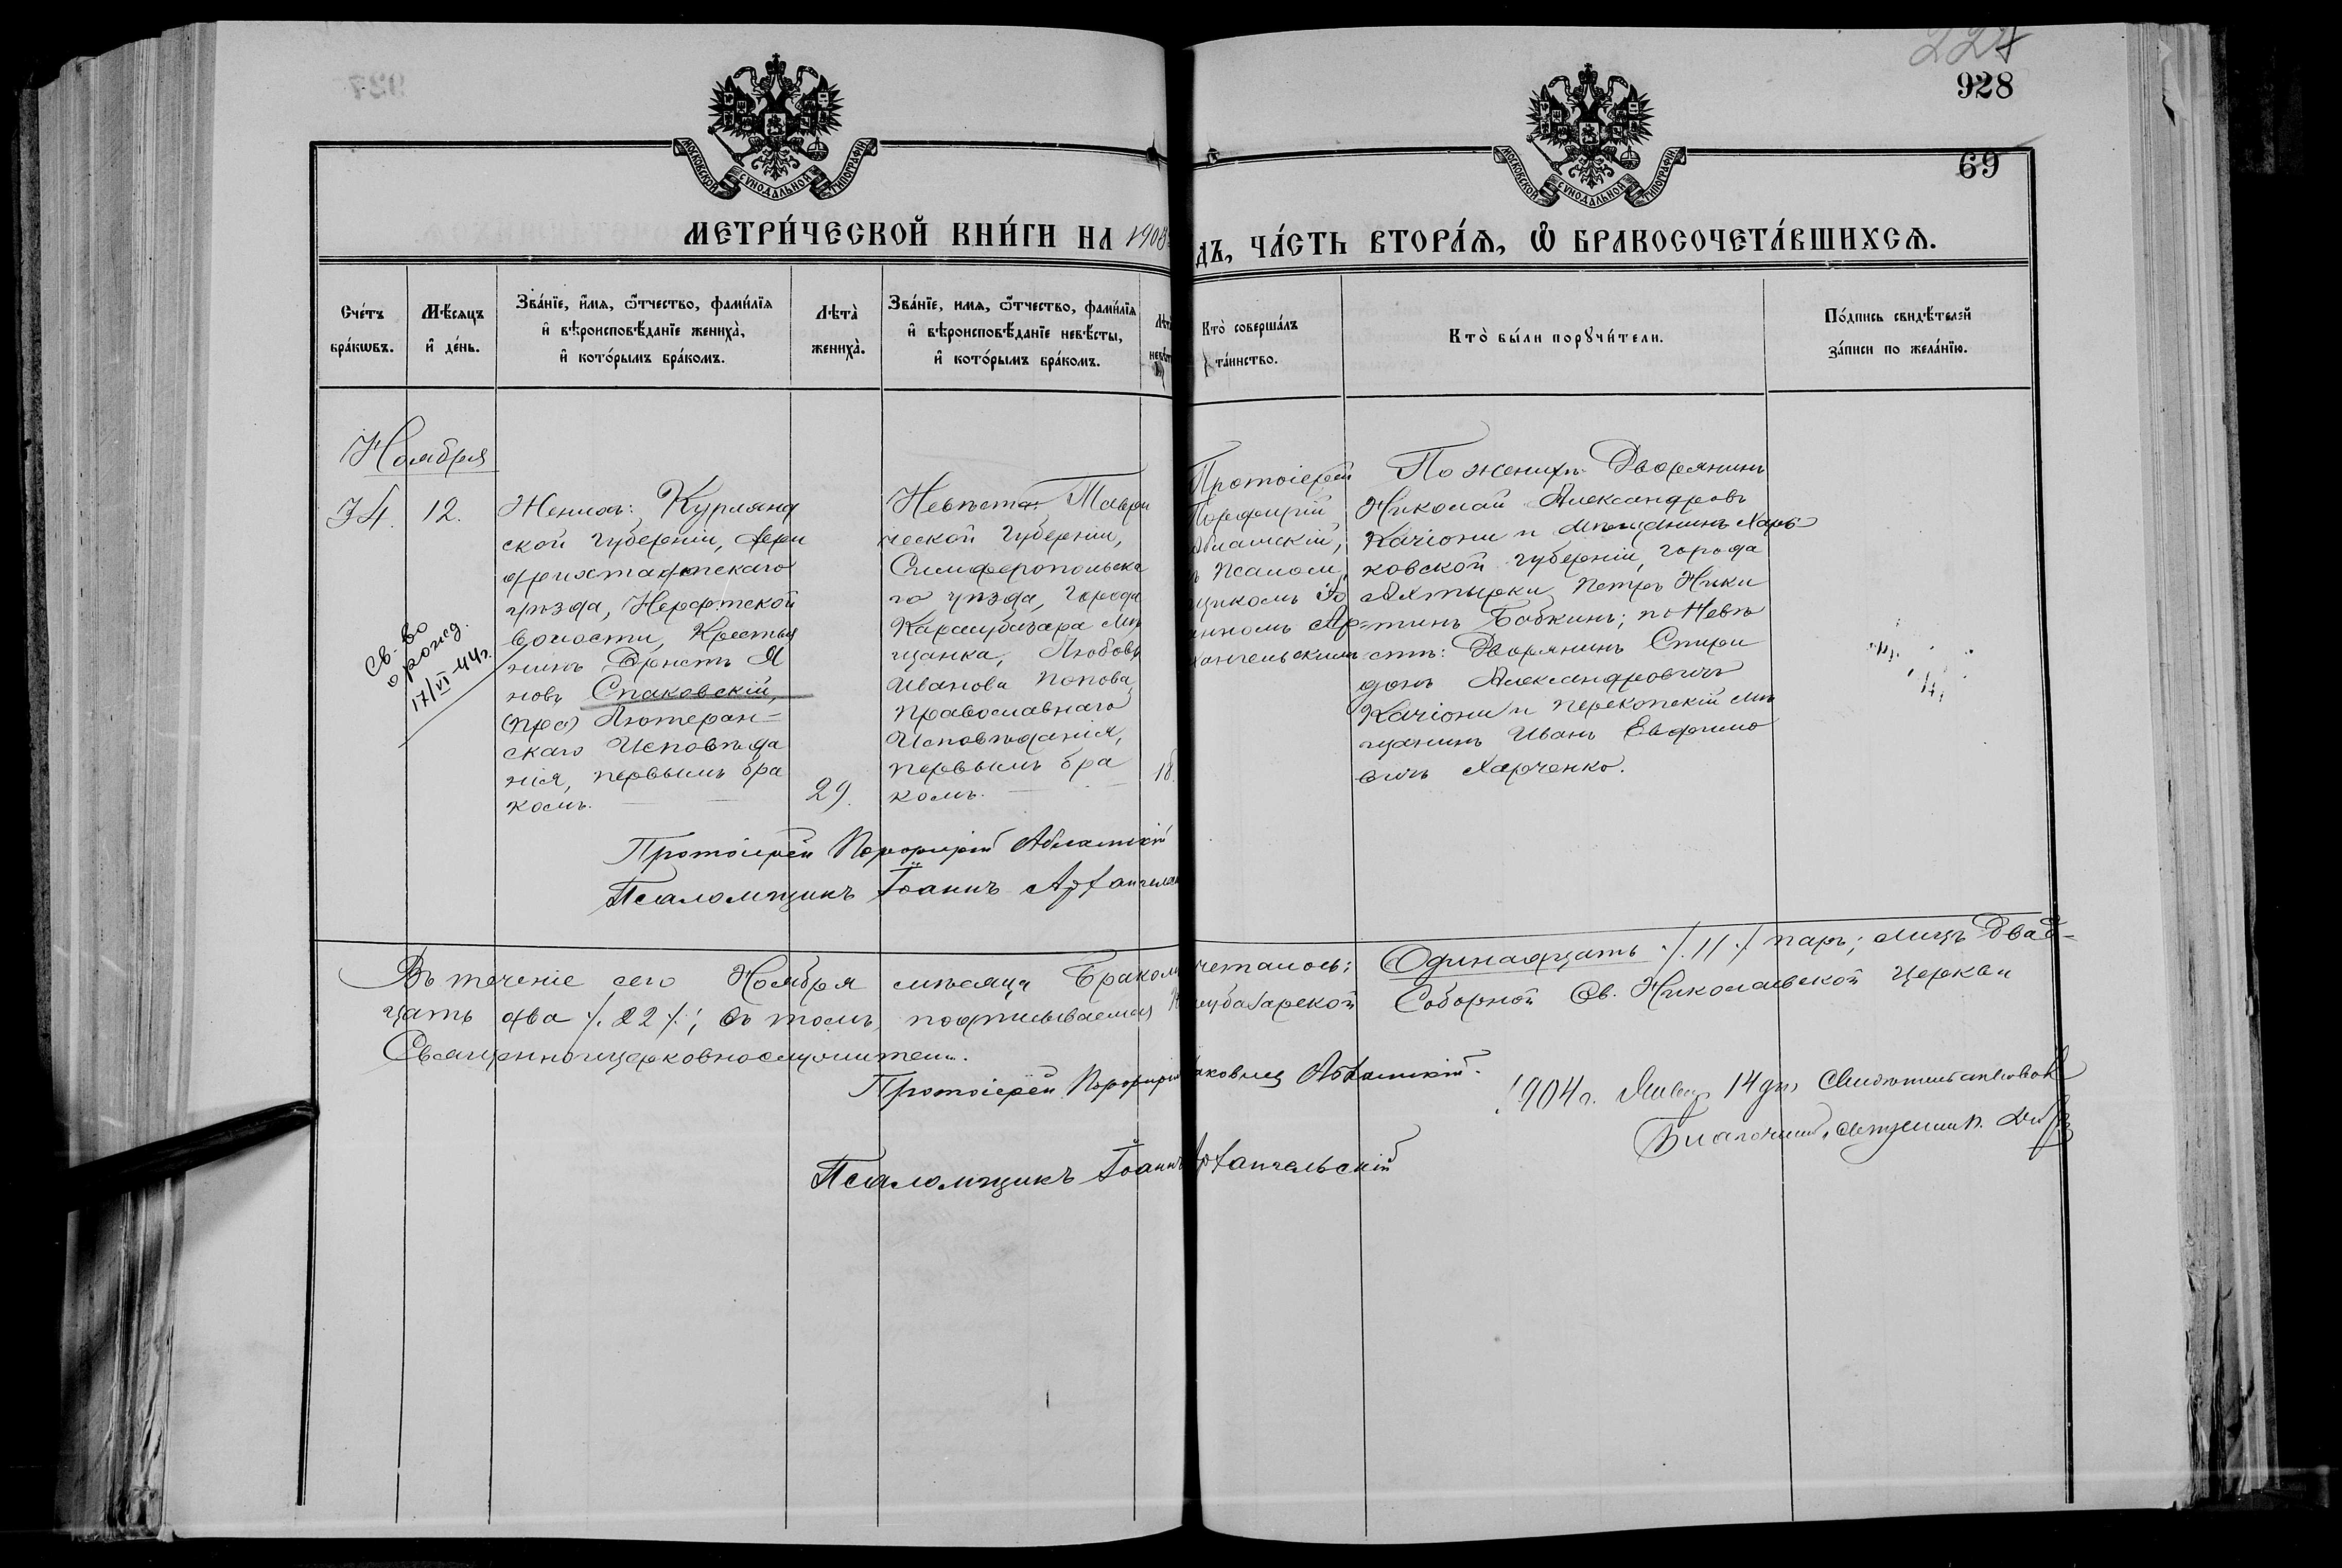 224
928
69
МОСКОВСКОЙ СѴНОДАЛЬНОЙ ТИПОГРАФІИ
МОСКОВСКОЙ СѴНОДАЛЬНОЙ ТИПОГРАФІИ
МЕТРИ́ЧЕСКОЙ КНИ́ГИ НА 1903
ДЪ, ЧА́СТЬ ВТОРА́Ѧ, Ѡ҆ БРАКОСОЧЕТА́ВШИХСѦ.
Сче́тъ бра́кѡвъ.
Мѣ́сяцъ и҆ де́нь.
Зва́нїе, и҆́мѧ, ѻ҆́тчество, фами́лїѧ
и҆ вѣроисповѣ́данїе жениха̀,
и҆ кото́рымъ бра́комъ.
Лѣта̀ жениха̀.
Зва́нїе, имѧ, ѻ҆́тчество, фами́лїѧ
и҆ вѣроисповѣ́данїе невѣ́сты,
и҆ кото́рымъ бра́комъ.
Кто̀ соверша́лъ
та́инство.
Кто̀ бы́ли порꙋчи́тели.
По́дпись свидѣ́телей
за́писи по жела́нїю.
Ноября
34.
12.
Св-во
о рожд.
17/VI-44г.
Женихъ: Курлянд
ской губерніи, Фри
дрихштадтскаго
уѣзда, Нерфтской
волости, Крестья
нинъ Эрнстъ Я
новъ Спаковскій,
(пра) Лютеран=
скаго Исповѣда
нія, первымъ бра
комъ.
29.
Невѣста: Таври
ческой губерніи,
Симферопольска
го уѣзда, города
Карасубазара Мѣ
щанка, Любовь
Иванова Попова,
Православнаго
Исповѣданія,
первымъ бра
комъ.
18.
Протоіерей
Порфирій
Абламскій,
ъ Псалом,
щикомъ Іо
анномъ Ар=
хангельскимъ
По женихѣ: Дворянинъ
Николай Александровъ
Качіони и мѣщанинъ Харь=
ковской губерніи, города
Ахтырки, Петръ Ники
тинъ Бабкинъ; по Невѣ
стѣ: Дворянинъ Спири
донъ Александровичъ
Качіони и Перекопскій мѣ
щанинъ Иванъ Евфимо
вичъ Харченко.
Протоіерей Порфирій Абламскій
Псаломщикъ Іоаннъ Архангельск
Въ теченіе сего Ноября мѣсяца Бракомъ
четалось: Одинадцать /. 11 ./ паръ; лицъ двад=
цать два /. 22 ./; въ томъ подписываемся К
субазарской Соборной Св. Николаевской Церкви
Священноцерковнослужители.
Протоіерей Порфирій
аковлев Абламскій.
Псаломщикъ Іоаннъ
Архангельскій
1904 г. Январ 14 дня Свидетельствовал
Благочинный, священник